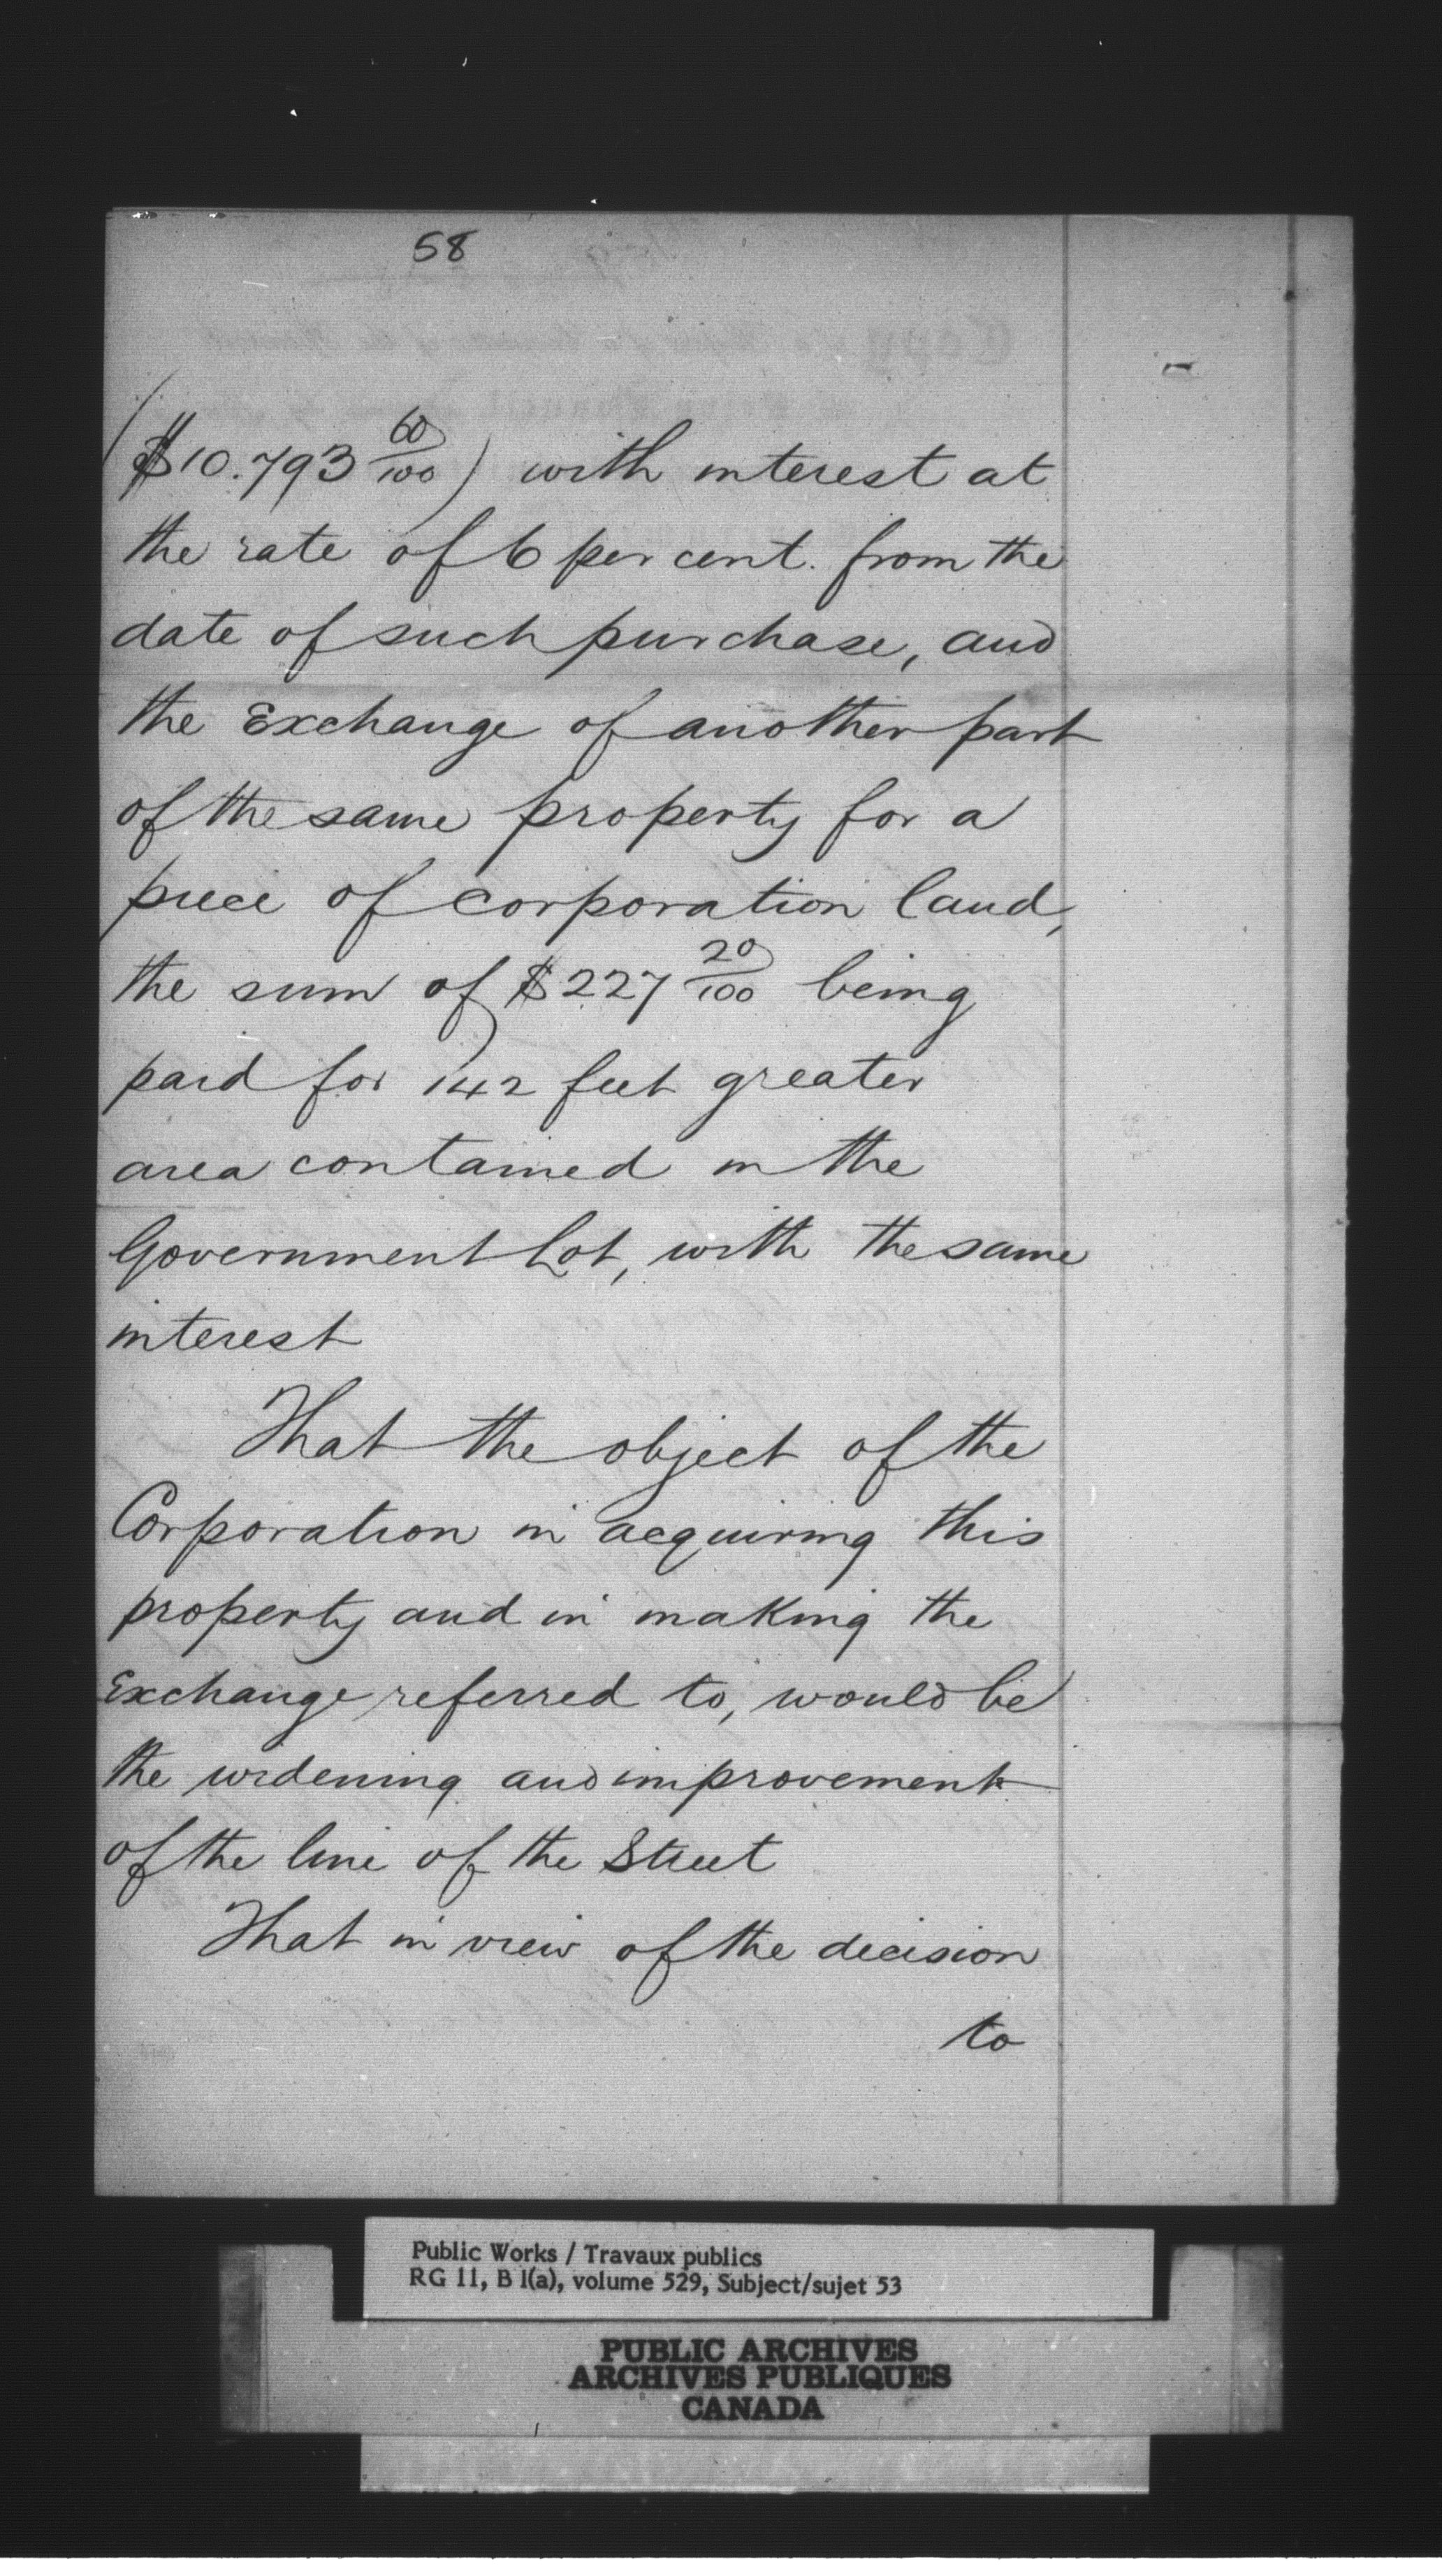 58
($10.793 60/100) with interest at
the rate of 6 per cent. from the
date of such purchase, and
the Exchange of another part
of the same property for a
piece of corporation land,
the sum of $227 20/100 being
paid for 142 feet greater
area contained in the
Government Lot, with the same
interest
That the object of the
Corporation in acquiring this
property and in making the
Exchange referred to, would be
the widening and improvement
of the line of the Street
That in view of the decision
to
Public Works / Travaux publics
RG 11, B 1(a), volume 529, Subject/sujet 53
PUBLIC ARCHIVES
ARCHIVES PUBLIQUES
CANADA